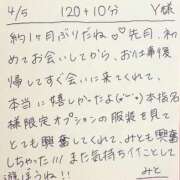 4/5 120+10分 Y様
約1ヶ月ぶりだね♡♡先月、初
めてお会いしてから、お仕事復
帰してすぐ会いに来てくれて、
本当に嬉しかったよ(˘ᵕ˘)本指名
様限定オプションの服装を見て
とても興奮してくれて、みとも興奮
しちゃった!!!また気持ちイイことして
遊ぼうね!! みと